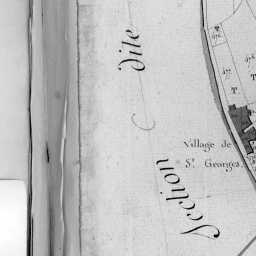 Section
C
dite
Village de
St. Georges
T
T